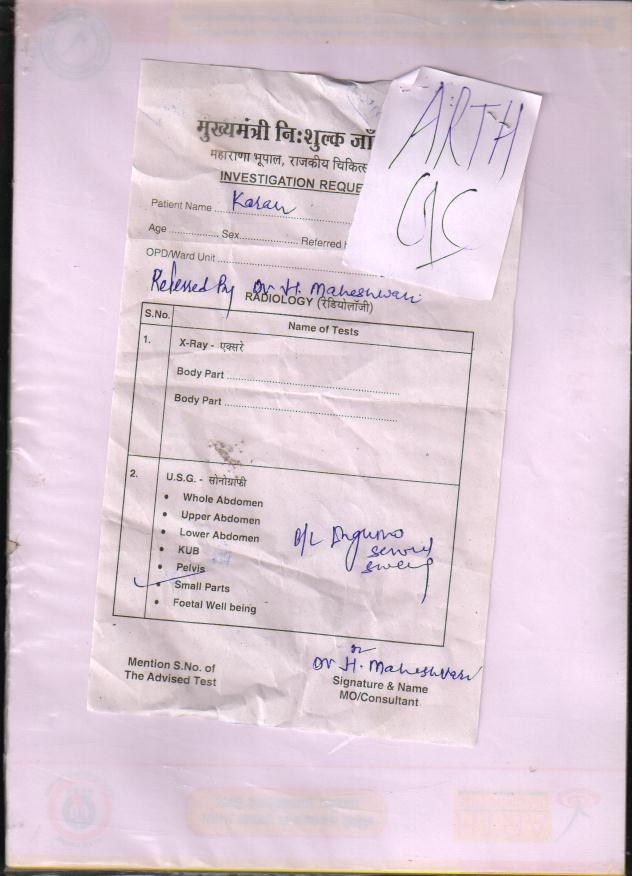 ARTH
मुख्यमंत्री नि:शुल्क जाँ
महाराणा भूपाल, राजकीय चिकित्स
INVESTIGATION REQUE
Patient Name Karan
Age .............. Sex.................. Referred
OPD/Ward Unit
Referred By Dr H. Maheshwari
RADIOLOGY (रेडियोलॉजी)
S.No. Name of Tests
1. X-Ray - एक्सरे
Body Part
Body Part
2. U.S.G. - सोनोग्राफी
• Whole Abdomen
• Upper Abdomen
• Lower Abdomen
• KUB
• Pelvis
• Small Parts
• Foetal Well being
B/L Inguino
Dr H. Maheshwari
Mention S.No. of
The Advised Test
Signature & Name
MO/Consultant